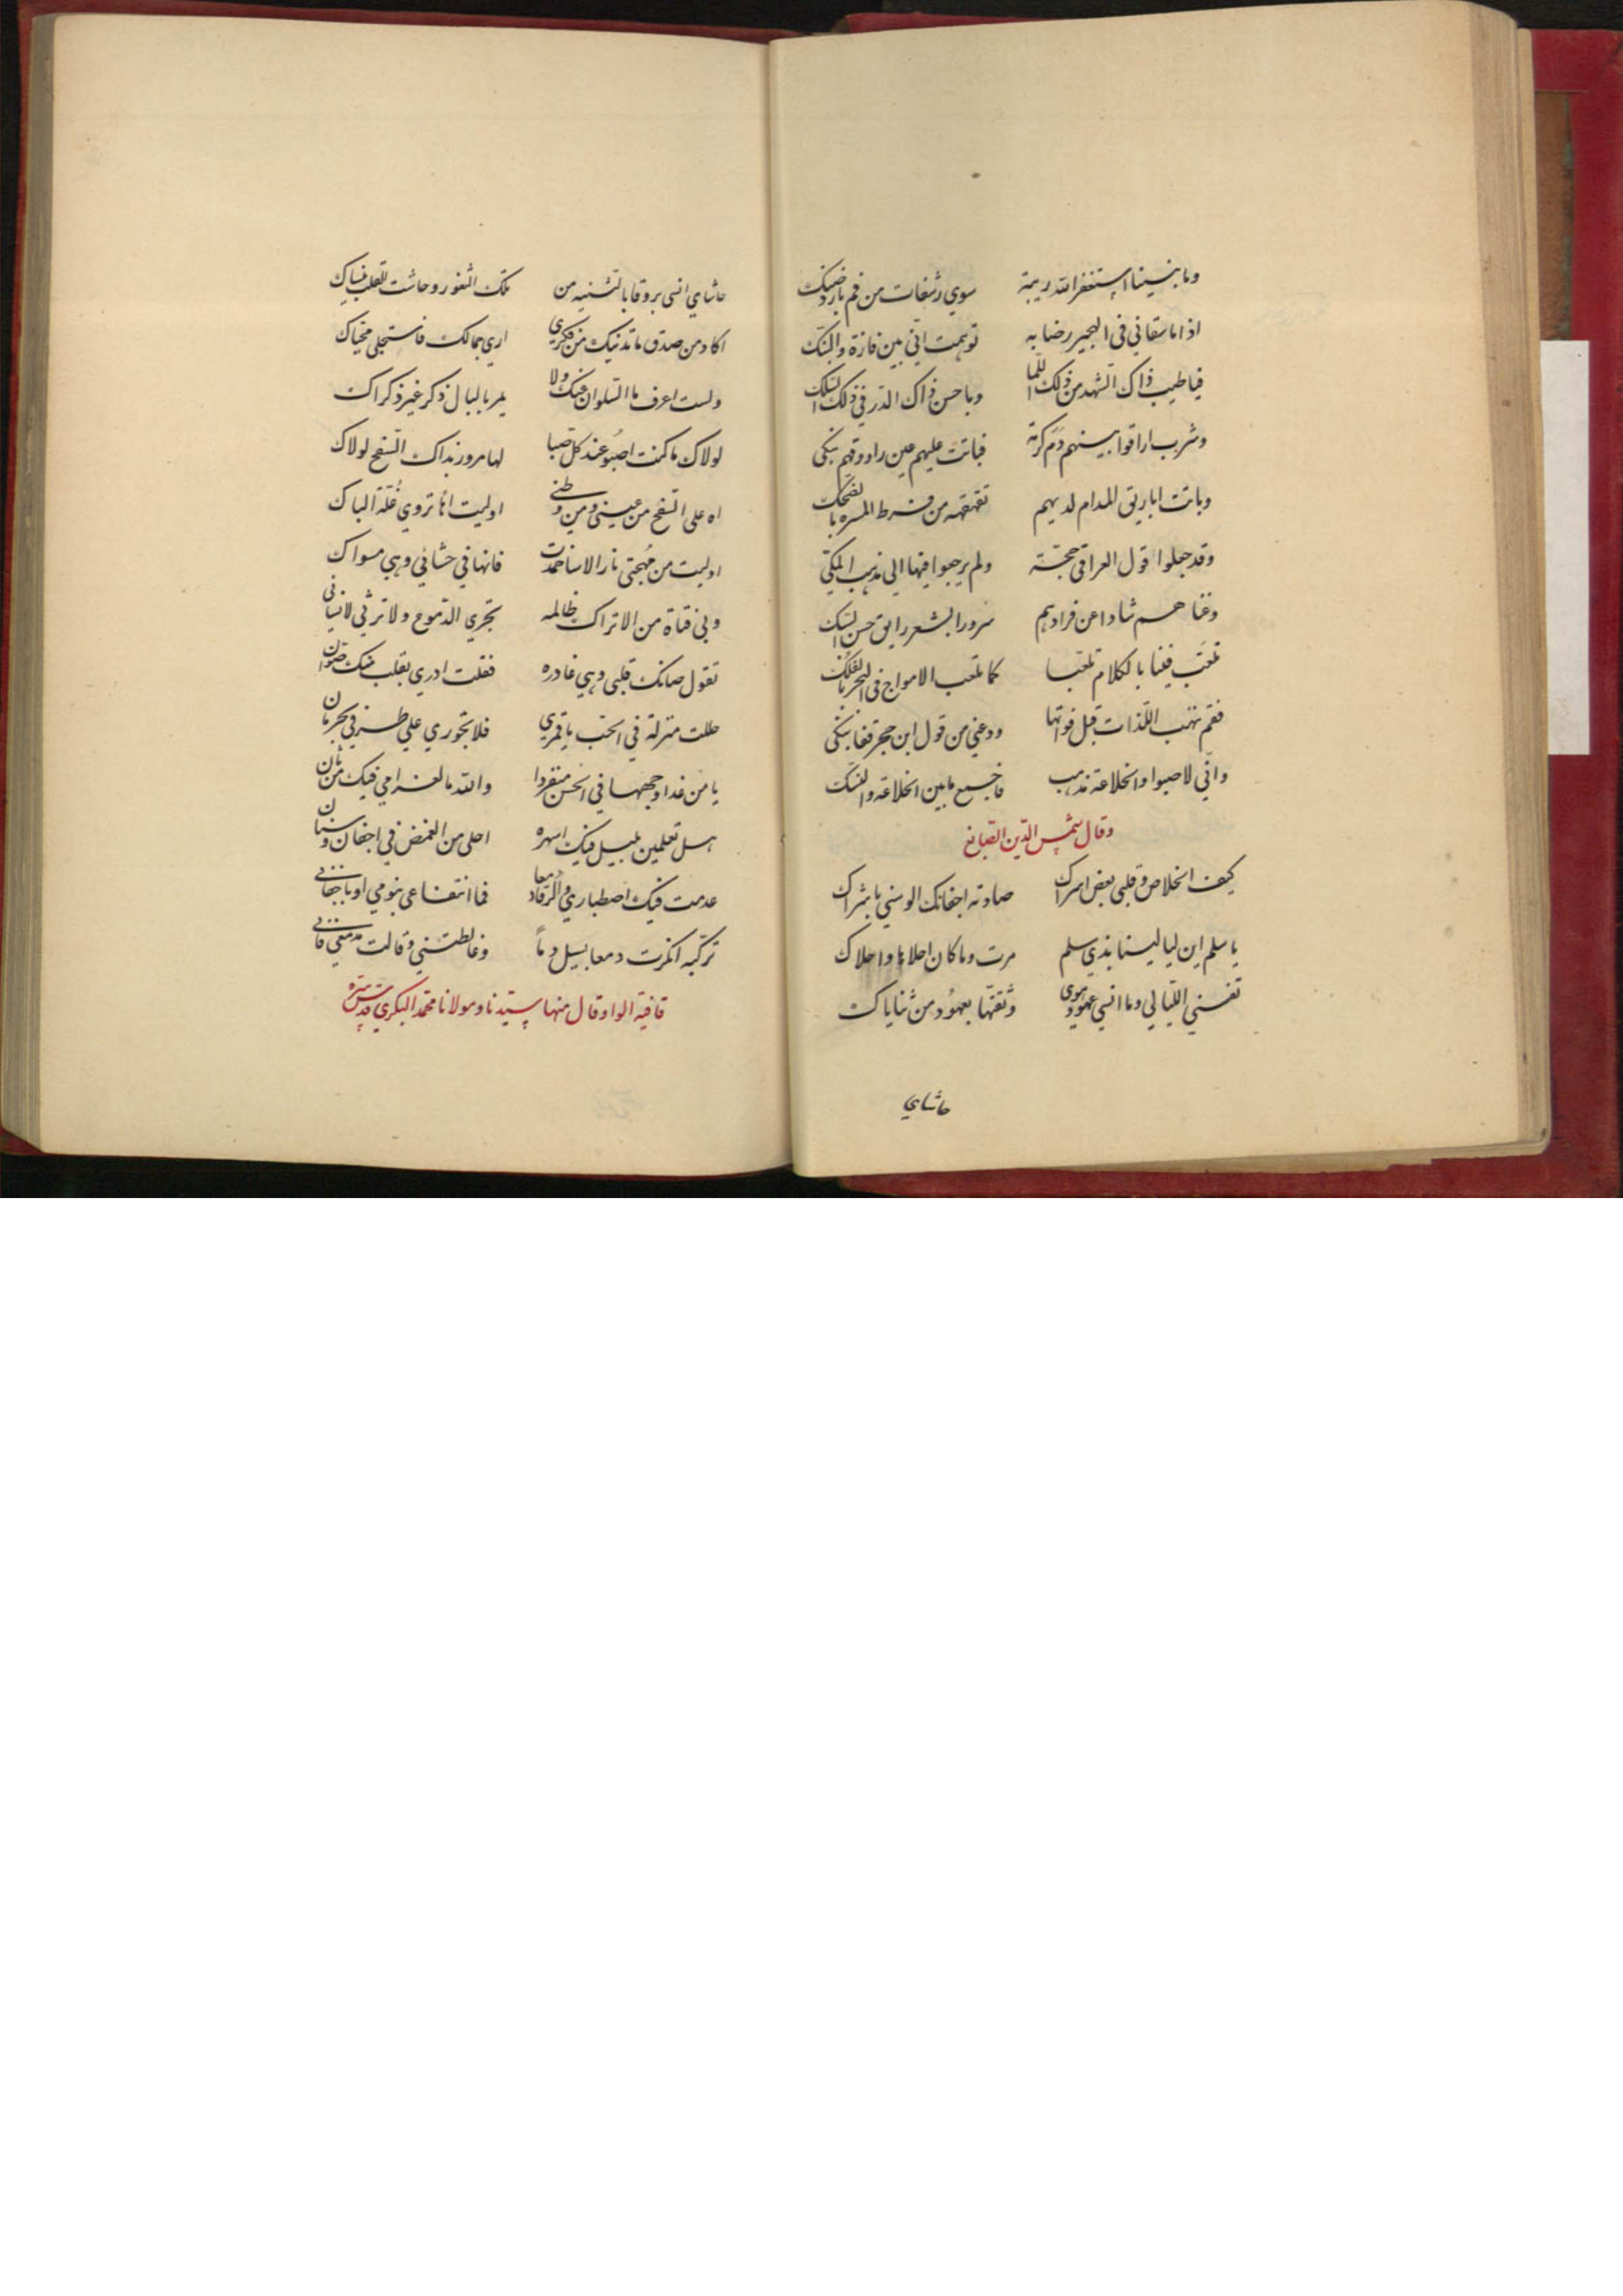 وما بيننا استغفر الله ريبة سوي رشفات من فم بارد ضنك
اذا ما سقاني في الهجير رضابه توهمت اني بين فازة والبنك
فيا طيب ذاك الشهد من ذلك اللما ويا حسن ذاك الدر في ذلك السلك
وشرب اراقوا بينهم دم كرمة فباتت عليهم عين راووقهم تبكي
وباتت اباريق المدام لديهم تقهقه من فرط المسره بالضحك
وقد جعلوا قول العراقي حجة ولم يرجعوا فيها الي مذهب المكي
وغناهم شاد اغن فزادهم سرورا بشعر رايق حسن السبك
تلعب فينا بالكلام تلعبا كما تلعب الامواج في البحر بالفلك
فقم ننهب اللذات قبل فواتها ودعني من قول ابن حجر قفا نبكي
واني لاصبوا والخلاعة مذهب فاجمع ما بين الخلاعة والنسك
وقال شمس الدين الصايغ
كيف الخلاص وقلبي بعض اسراك صادته اجفانك الوسني باشراك
يا سلم اين ليالينا بذي سلم مرت وما كان احلاها واحلاك
تفنى الليالي وما انسي عهود هوى وثقتها بعهود من ثناياك
حاشاي
حاشاي انسى بروقا بالثنيه من تلك الثغور وحاشت لقلب ينساك
اكاد من صدق ما تدنيك من فكري اري جمالك فاستجلي محياك
ولست اعرف ما السلوان عنك ولا يمر بالبال ذكر غير ذكراك
لولاك ما كنت اصبو عند كل صبا لها مرور بذاك السفح لولاك
اه علي السفح من عيني ومن وطني اوليت انها تروي غلة الباك
اوليت من مهجتي نار الاسا خمدت فانها في حشائي وهي مسواك
وبي فتاة من الاتراك ظالمه تجري الدموع ولا ترثي لانسانى
تقول صانك قلبي وهي غادره فقلت ادري بقلب منك صوان
حللت منزلة في الحب يا قمري فلا تجوري علي طرفي بحرمان
يا من غدا وجهها في الحسن منفردا والله ما لغرامي فيك من ثان
هل تعلمين بليل فيك اسهره احلي من الغمض في اجفان وسنان
عدمت فيك اصطباري والرقاد معا فما انتفاعي بنومي او باجفاني
تركيه انكرت دمعا يسيل دماً وغالطتني وقالت مدمعي قاني
قافية الواو قال منها سيدنا ومولانا محمد البكري قدس سره